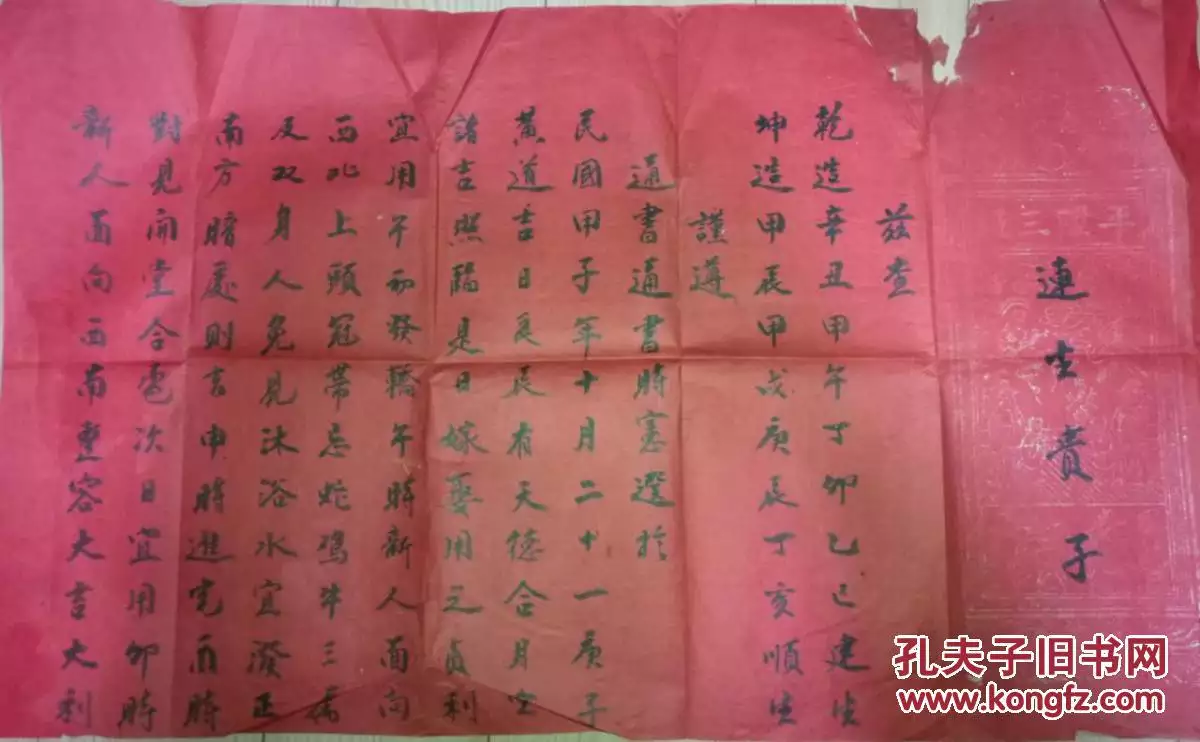 連生貴子
三 平
茲查
乾造辛丑甲午丁卯乙巳建生
坤造甲辰甲戌庚辰丁亥順生
謹遵
通書通書時憲選於
民國甲子年十月二十一庚子
黃道吉日良辰有天德合月空
諸吉照臨是日嫁娶用之貞利
宜用午初發轎午時新人面向
西北上頭冠帶忌蛇鷄牛三屬
及双身人免見沐浴水宜潑正
南方暗處則吉申時進宅酉時
對見開堂合卺次日宜用卯時
新人面向西南整容大吉大利
孔夫子旧书网
www.kongfz.com